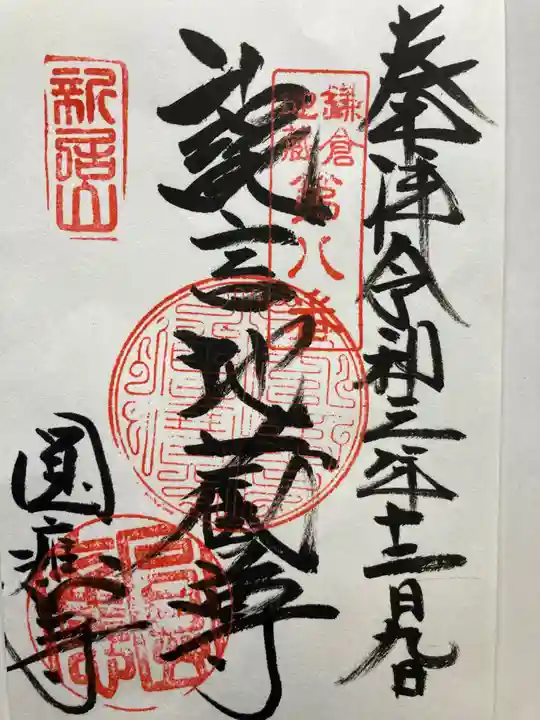 奉拝 令和三年十二月九日
鎌倉
地蔵
第八番
詫言地蔵尊
新居山
圓應寺